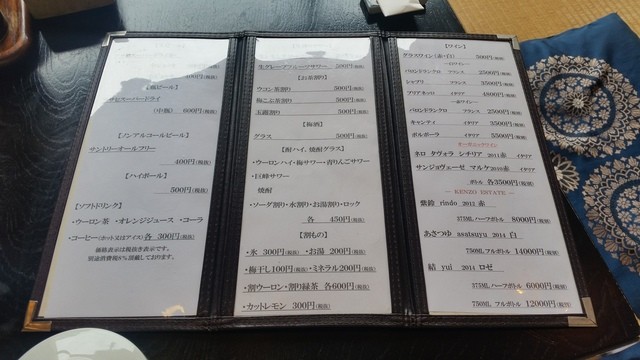 400円(税抜)
【瓶ビール】
アサヒスーパードライ
(中瓶) 600円(税抜)
【ノンアルコールビール】
サントリーオールフリー
400円(税抜)
【ハイボール】
500円(税抜)
【ソフトドリンク】
・ウーロン茶 ・オレンジジュース ・コーラ
・コーヒー(ホット又はアイス)各 300円(税抜)
価格表示は税抜き表示です。
別途消費税8%頂戴しております。
生グレープフルーツサワー 500円(税抜)
【お茶割り】
ウコン茶割り 500円(税抜)
梅こぶ茶割り 500円(税抜)
玉露割り 500円(税抜)
【梅酒】
グラス 500円(税抜)
【酎ハイ、焼酎グラス】
・ウーロンハイ・梅サワー・青りんごサワー
・巨峰サワー
焼酎
・ソーダ割り・水割り・お湯割り・ロック
各 450円(税抜)
【割もの】
・氷 300円(税抜) ・お湯 200円(税抜)
・梅干し100円(税抜)・ミネラル200円(税抜)
・割ウーロン・割り緑茶 各600円(税抜)
・カットレモン 300円(税抜)
【ワイン】
グラスワイン(赤・白) 500円(税抜)
―白ワイン―
バロンドランクロ フランス 2500円(税抜)
シャブリ フランス 3500円(税抜)
イタリア 4800円(税抜)
―赤ワイン―
バロンドランクロ フランス 2500円(税抜)
キャンティ イタリア 3500円(税抜)
バルポーラ イタリア 3500円(税抜)
オーガニックワイン
ネロ タヴォラ シチリア 2011赤 イタリア
サンジョヴェーゼ マルケ2010赤 イタリア
ボトル 各3500円(税抜)
― KENZO ESTATE ―
紫鈴 rindo 2011 赤
375ML ハーフボトル 8000円(税抜)
あさつゆ asatsuyu 2014 白
750ML フルボトル 14000円(税抜)
結 yui 2014 ロゼ
375ML ハーフボトル 6000円(税抜)
750ML フルボトル 12000円(税抜)